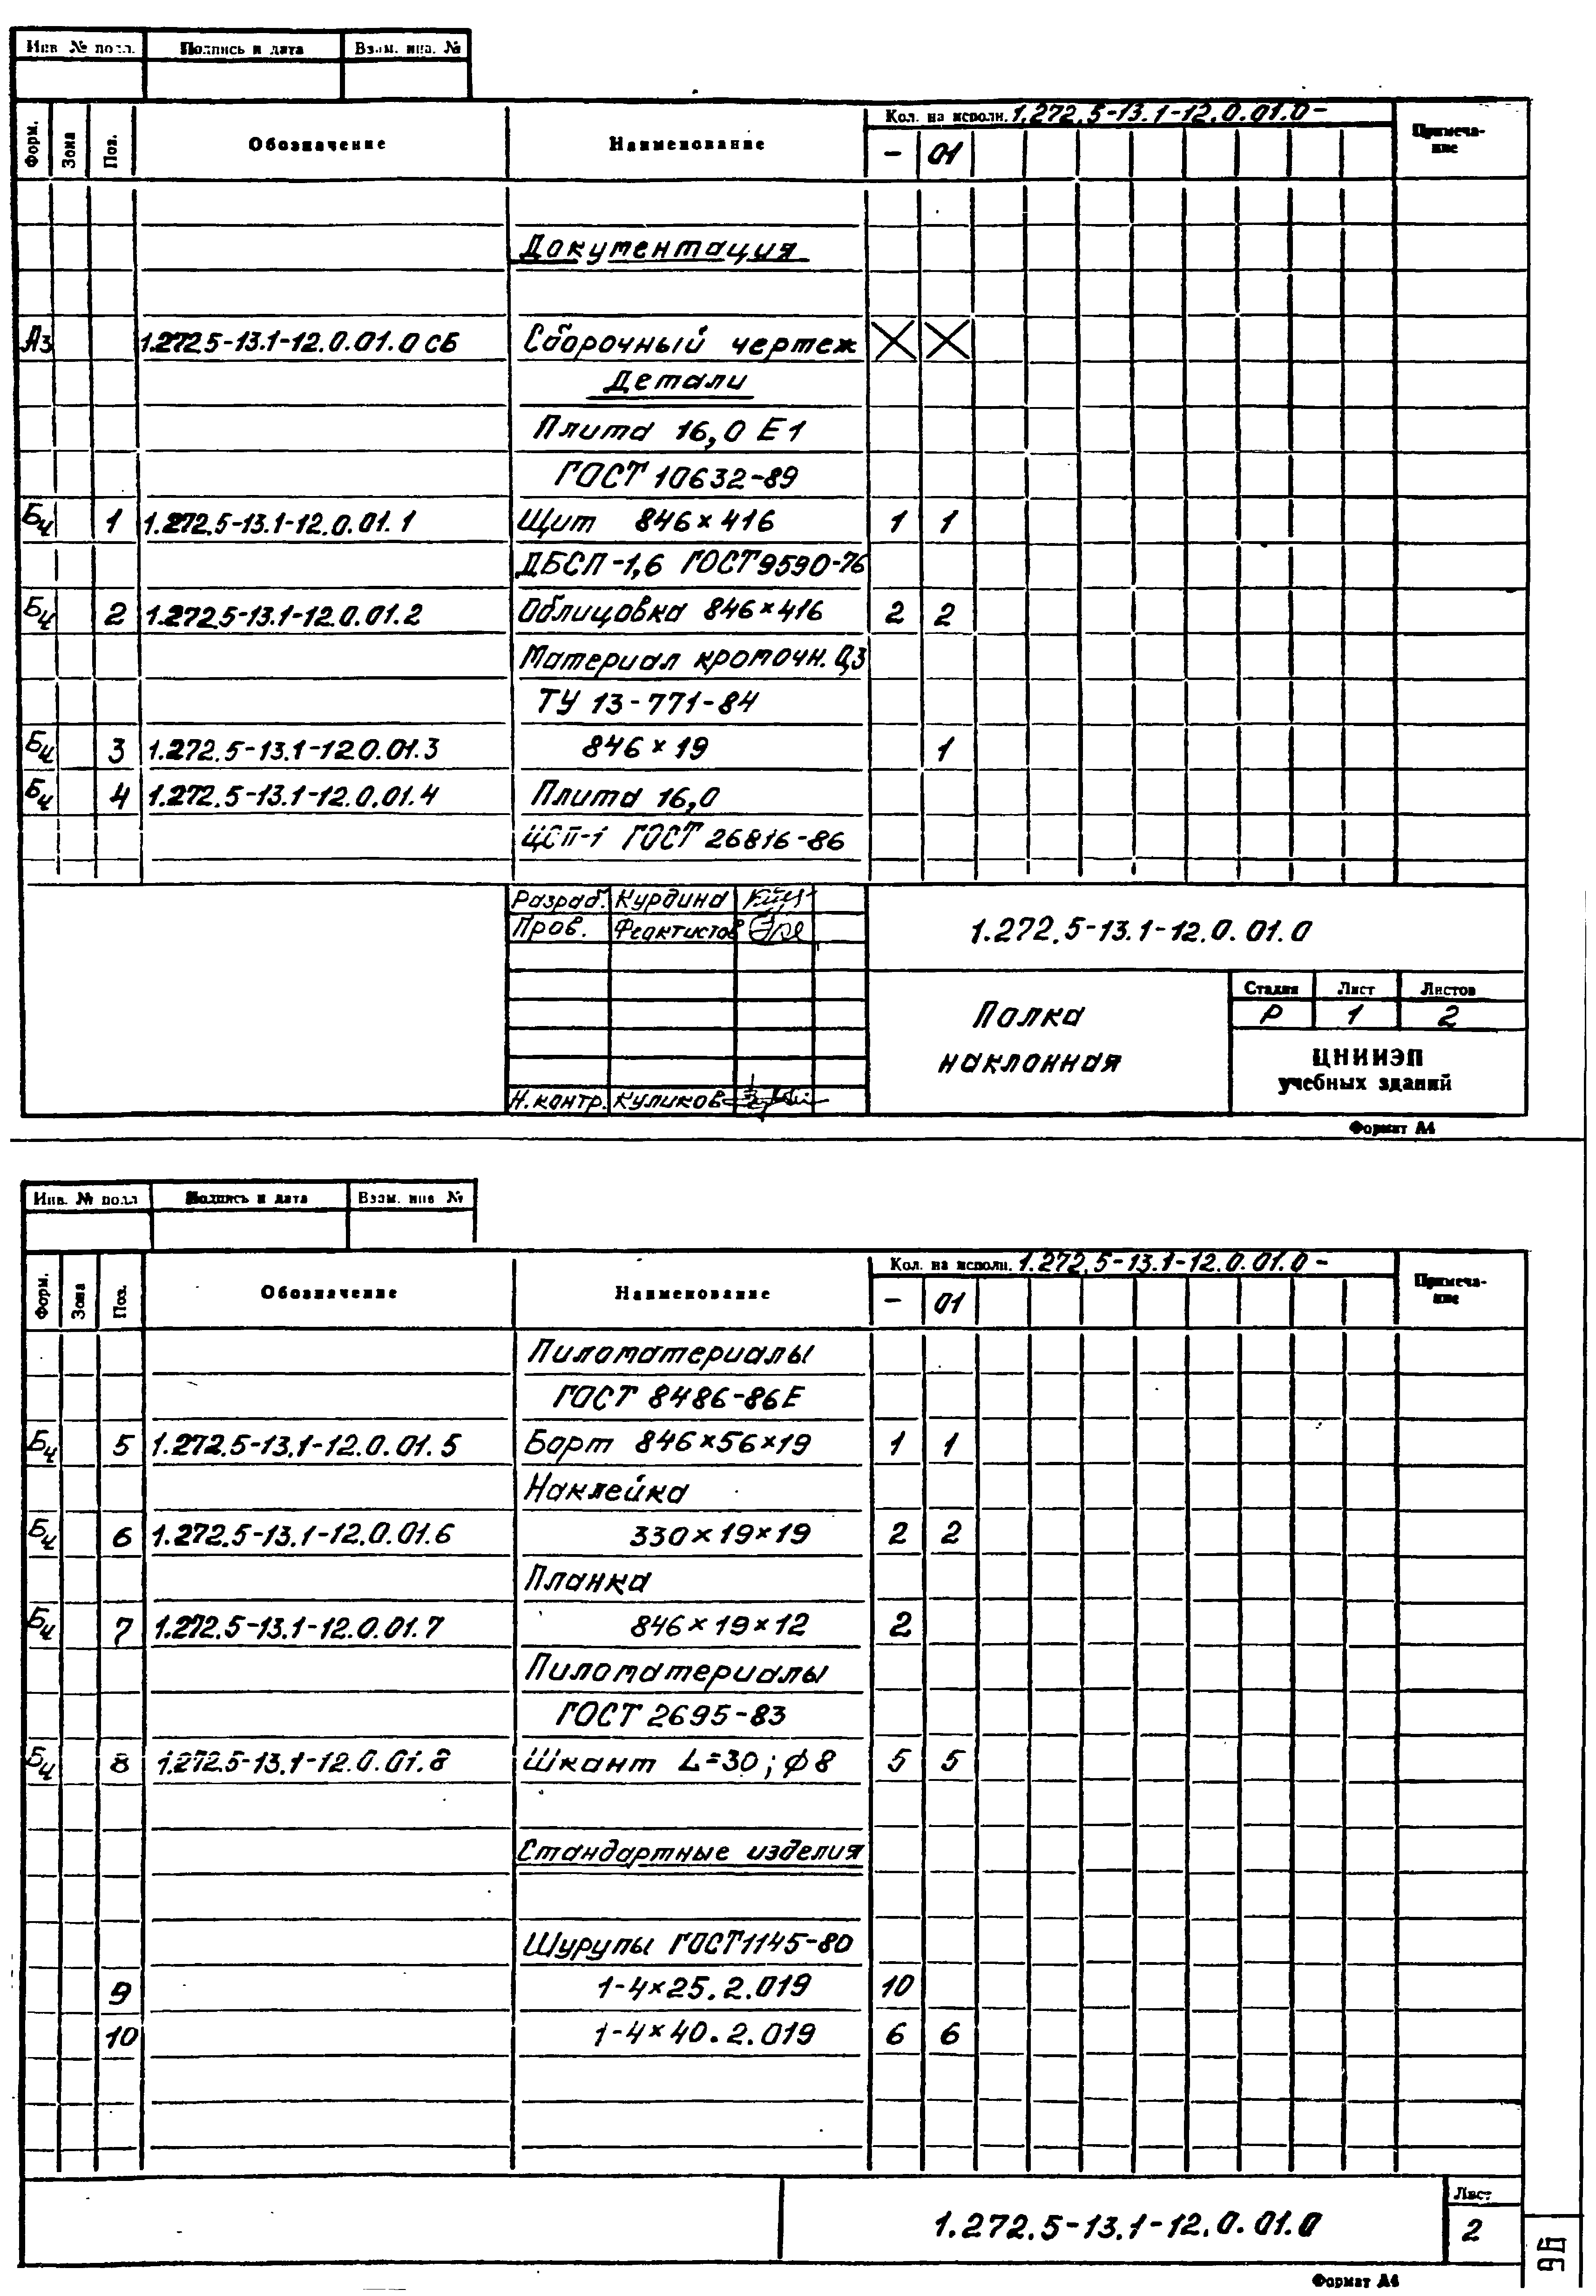 Инв № подл. Подпись и дата Взам. инв. №
Форм. Зона Поз. Обозначение Наименование Кол. на исполн. 1.272.5-13.1-12.0.01.0- Примеча-
ние
- 01
Документация
А3 1.272.5-13.1-12.0.01.0 СБ Сборочный чертеж X X
Детали
Плита 16,0 Е1
ГОСТ 10632-89
Бч 1 1.272.5-13.1-12.0.01.1 Щит 846×416 1 1
ДБСП-1,6 ГОСТ 9590-76
Бч 2 1.272.5-13.1-12.0.01.2 Облицовка 846×416 2 2
Материал кромочн. 0,3
ТУ 13-771-84
Бч 3 1.272.5-13.1-12.0.01.3 846×19 1
Бч 4 1.272.5-13.1-12.0.01.4 Плита 16,0
ЦСП-1 ГОСТ 26816-86
Разраб. Курдина
Пров. Феактистов
1.272.5-13.1-12.0.01.0
Полка
наклонная
Стадия Лист Листов
Р 1 2
ЦНИИЭП
учебных зданий
Н.контр. Куликов
Формат А4
Инв. № подл Подпись и дата Взам. инв №
Форм. Зона Поз. Обозначение Наименование Кол. на исполн. 1.272.5-13.1-12.0.01.0- Примеча-
ние
- 01
Пиломатериалы
ГОСТ 8486-86Е
Бч 5 1.272.5-13.1-12.0.01.5 Борт 846×56×19 1 1
Наклейка
Бч 6 1.272.5-13.1-12.0.01.6 330×19×19 2 2
Планка
Бч 7 1.272.5-13.1-12.0.01.7 846×19×12 2
Пиломатериалы
ГОСТ 2695-83
Бч 8 1.272.5-13.1-12.0.01.8 Шкант L=30; ф8 5 5
Стандартные изделия
Шурупы ГОСТ 1145-80
9 1-4×25.2.019 10
10 1-4×40.2.019 6 6
1.272.5-13.1-12.0.01.0
Лист
2
Формат А4